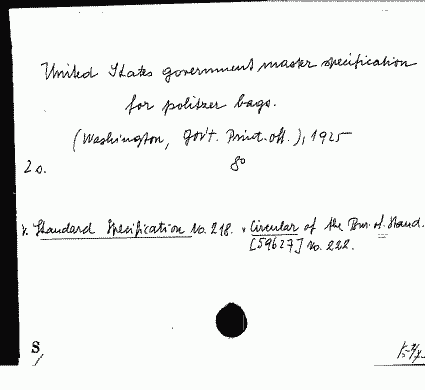 United States government master specification
for politzer bags.
(Washington, Gov't. Print. off.), 1925
2 s. 8°
Standard Specification No. 218. Circular of the Bur. of Stand.
[59627] No. 222.
S/